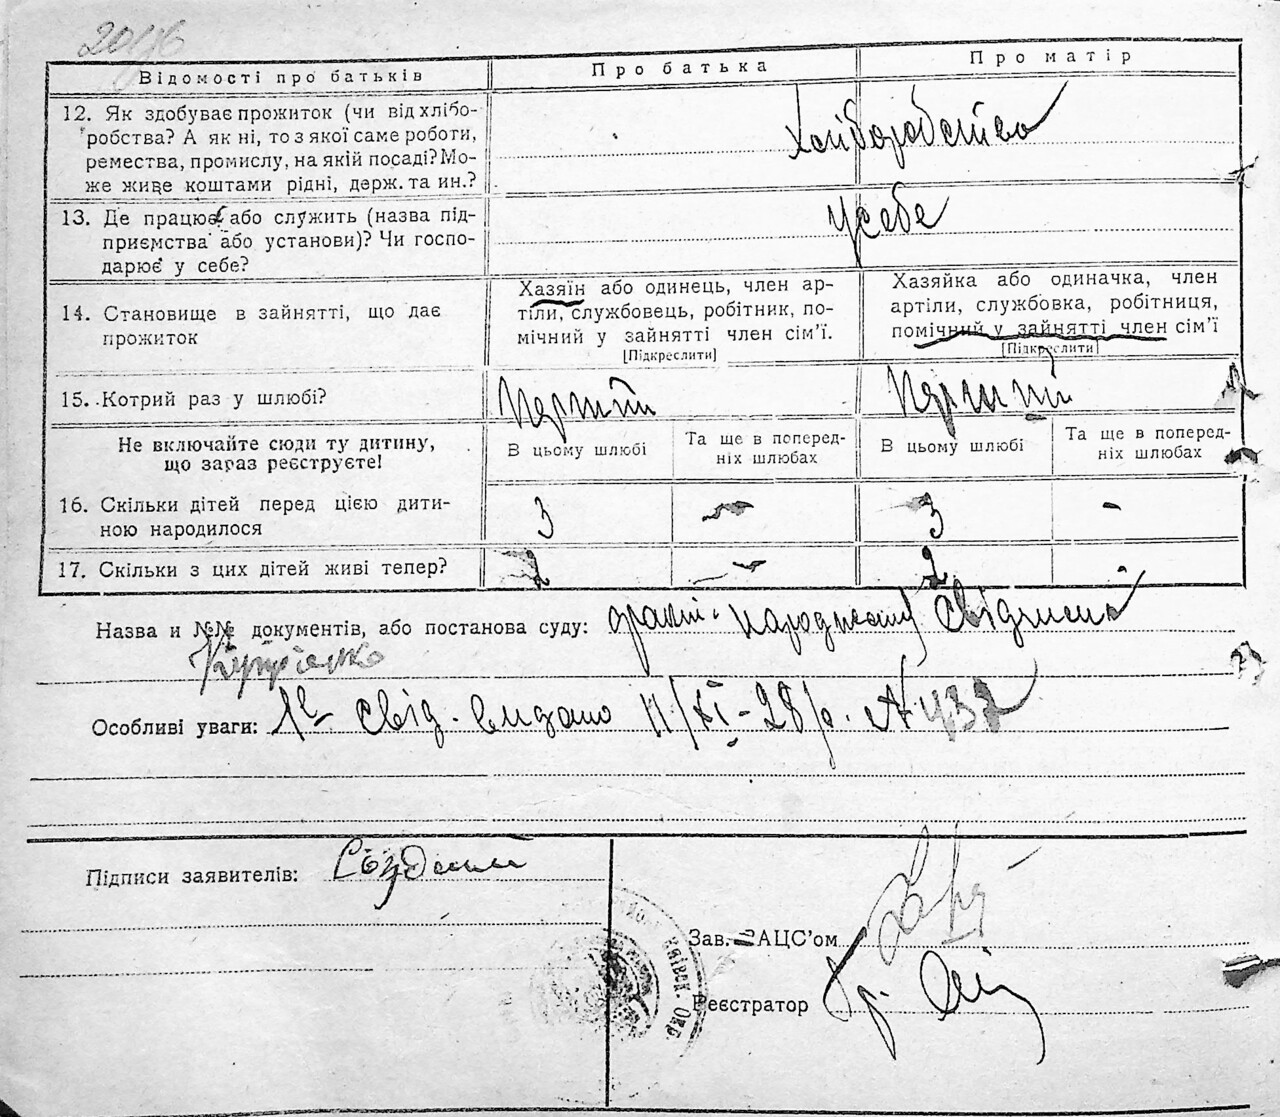 2046
Відомості про батьків
Про батька
Про матір
12. Як здобуває прожиток (чи від хлібо-
робства? А як ні, то з якої саме роботи,
ремества, промислу, на якій посаді? Мо-
же живе коштами рідні, держ. та ин.?
Хліборобство
13. Де працює або служить (назва під-
приємства або установи)? Чи госпо-
дарює у себе?
у себе
14. Становище в зайнятті, що дає
прожиток
Хазяїн або одинець, член ар-
тілі, службовець, робітник, по-
мічний у зайнятті член сім'ї.
[Підкреслити]
Хазяйка або одиначка, член
артіли, службовка, робітниця,
помічний у зайнятті член сім'ї
[Підкреслити]
15. Котрий раз у шлюбі?
Перший
Перший
Не включайте сюди ту дитину,
що зараз реєструєте!
В цьому шлюбі
Та ще в поперед-
ніх шлюбах
В цьому шлюбі
Та ще в поперед-
ніх шлюбах
16. Скільки дітей перед цією дити-
ною народилося
3
-
3
-
17. Скільки з цих дітей живі тепер?
2
-
2
-
Назва и №№ документів, або постанова суду:
Особливі уваги: свід. видано 11/XI-28 р. № 432
Підписи заявителів:
Київськ. Окр.
Зав. ЗАЦС'ом
Реєстратор